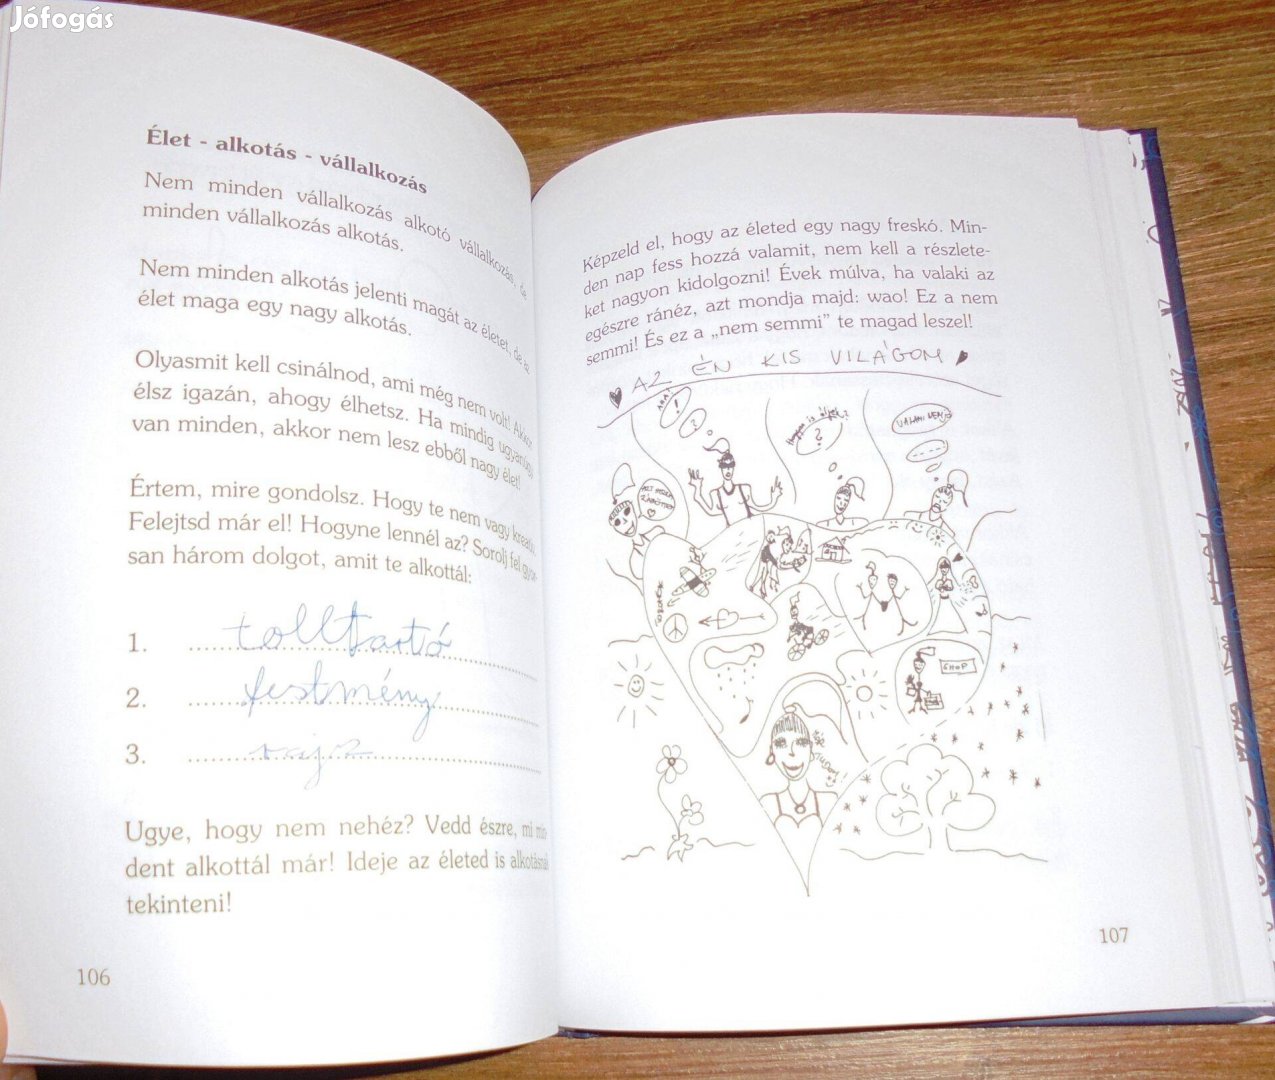 Jófogás
Élet - alkotás - vállalkozás
Nem minden vállalkozás alkotó vállalkozás, de
minden vállalkozás alkotás.
Nem minden alkotás jelenti magát az életet, de az
élet maga egy nagy alkotás.
Olyasmit kell csinálnod, ami még nem volt! Akkor
élsz igazán, ahogy élhetsz. Ha mindig ugyanúgy
van minden, akkor nem lesz ebből nagy élet!
Értem, mire gondolsz. Hogy te nem vagy kreatív.
Felejtsd már el! Hogyne lennél az? Sorolj fel gyor-
san három dolgot, amit te alkottál:
1. tolltartó
2. festmény
3. rajz
Ugye, hogy nem nehéz? Vedd észre, mi min
dent alkottál már! Ideje az életed is alkotásnak
tekinteni!
106
Képzeld el, hogy az életed egy nagy freskó. Min-
den nap fess hozzá valamit, nem kell a részlete-
ket nagyon kidolgozni! Évek múlva, ha valaki az
egészre ránéz, azt mondja majd: wao! Ez a nem
semmi! És ez a „nem semmi” te magad leszel!
AZ ÉN KIS VILÁGOM
AHA!
!
?
Hogyan is éljek?
?
SHOP
107